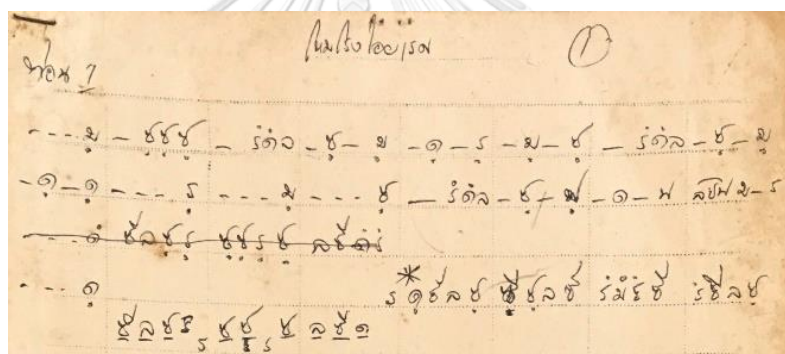 โหมโรงไอยเรศ 1
ท่อน 1
- - - มฺ – ซฺซฺซฺ – รํดํล – ซฺ – มฺ – ดฺ – รฺ – มฺ – ซฺ – รํดํล – ซฺ – มฺ
- ดฺ – ดฺ - - - รฺ - - - มฺ - - - ซฺ – รํดํล – ซฺ – มฺ – ด – ฟ ลซฟม – ร
- - - ดํ ทีลซฺรฺ ซฺซฺรฺซฺ ลทีดํรํ
- - - ดฺ รฺ * ดฺทีลซฺ ซฺลที รํมํรํที รํทีลซฺ
ทีลซฺรฺ ซฺซฺรฺซฺ ลทีด